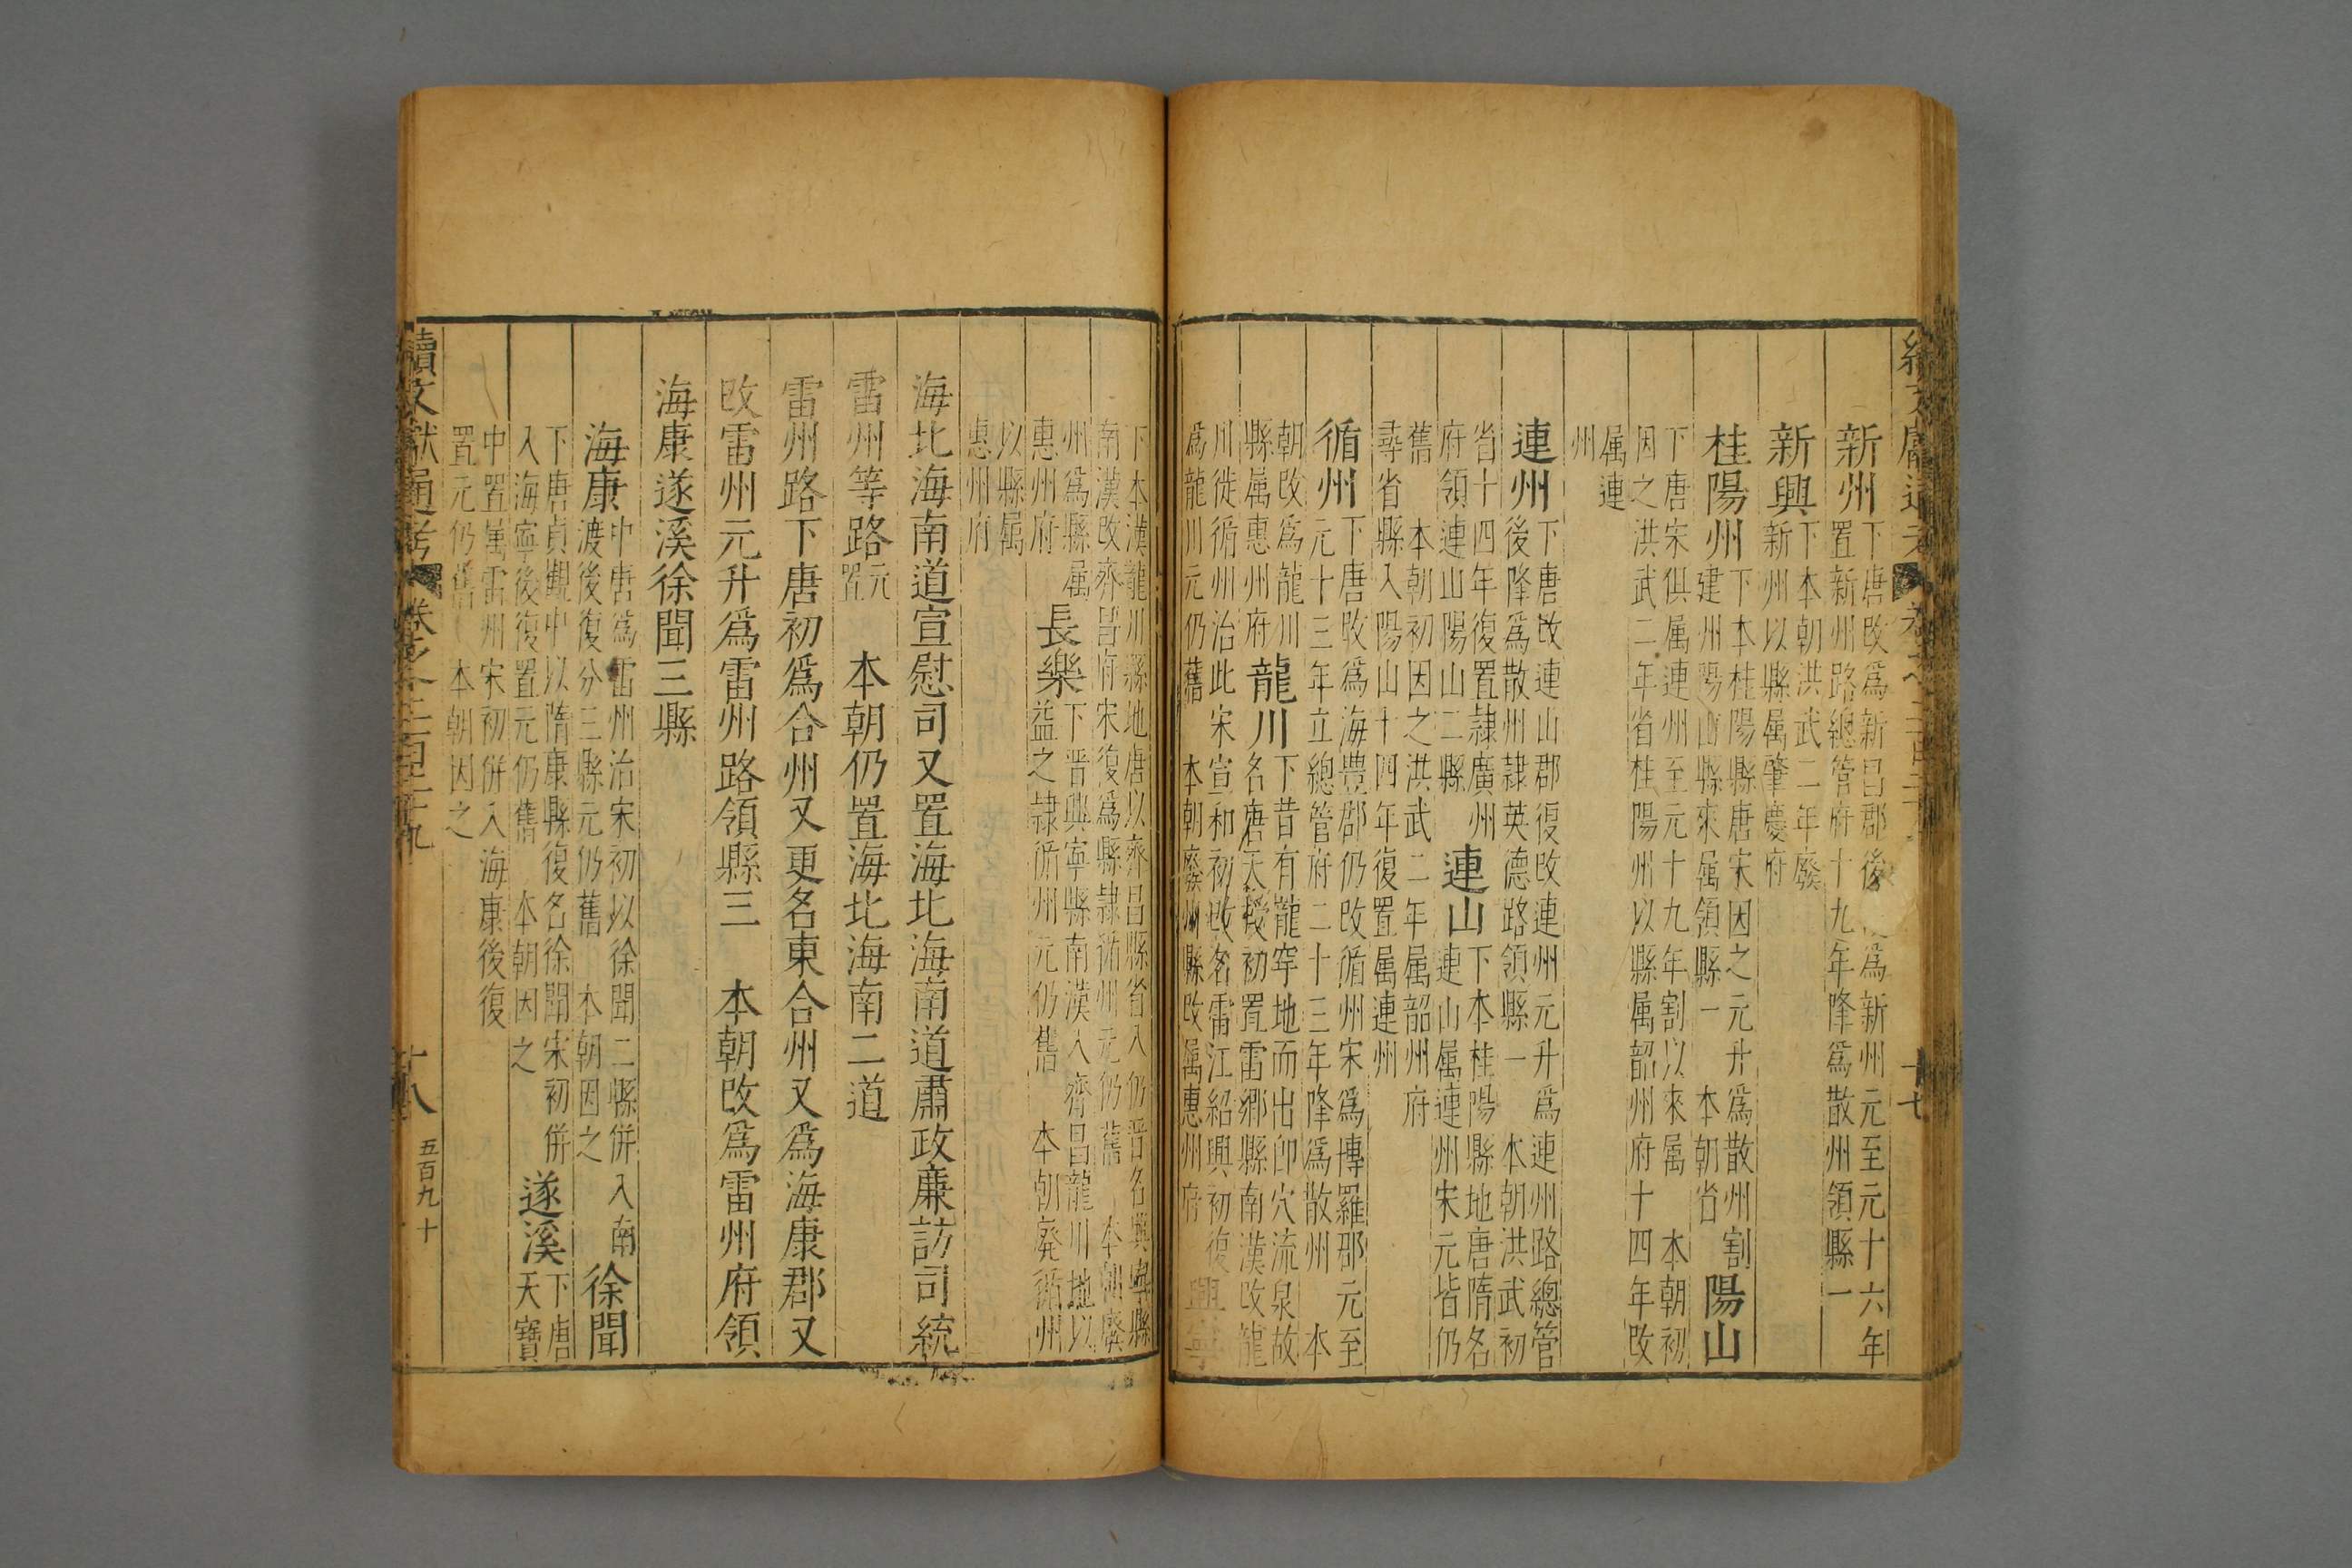 新州
下唐改爲新昌郡後
爲新州元至元十六年
置新州路總管府十九年降爲散州領縣一
新興
下本朝洪武二年廢
新州以縣属肇慶府
桂陽州
下本桂陽縣唐宋因之元升爲散州割
建州陽山縣來属領縣一 本朝省
陽山
下唐宋俱属連州至元十九年割以來属 本朝初
因之洪武二年省桂陽州以縣属韶州府十四年改
属連
州
連州
下唐改連山郡復改連州元升爲連州路總管
後降爲散州隷英德路領縣一 本朝洪武初
省十四年復置隷廣州
府領連山陽山二縣
連山
下本桂陽縣地唐隋名
連山属連州宋元皆仍
舊 本朝初因之洪武二年属韶州府
尋省縣入陽山十四年復置属連州
循州
下唐改爲海豊郡仍改循州宋爲博羅郡元至
元十三年立總管府二十三年降爲散州 本
朝改爲龍川
縣属惠州府
龍川
下昔有龍穿地而出卽穴流泉故
名唐天授初置雷郷縣南漢改龍
川徙循州治此宋宣和初改名雷江紹興初復
爲龍川元仍舊 本朝廢州縣改属惠州府
興寧
下本漢龍川縣地唐以齊昌縣省入仍晋名興寧縣
南漢改齊昌府宋復爲縣隷循州元仍舊 本朝廢
州爲縣属
惠州府
長樂
下晋興寧縣南漢入齊昌龍川地以
益之隷循州元仍舊 本朝廢循州
以縣属
惠州府
海北海南道宣慰司又置海北海南道肅政廉訪司統
雷州等路元置 本朝仍置海北海南二道
雷州路下唐初爲合州又更名東合州又爲海康郡又
改雷州元升爲雷州路領縣三 本朝改爲雷州府領
海康遂溪徐聞三縣
海康
中唐爲雷州治宋初以徐聞二縣併入南
渡後復分三縣元仍舊 本朝因之
徐聞
下唐貞觀中以隋康縣復名徐聞宋初併
入海寧後復置元仍舊 本朝因之
遂溪
下唐
天寶
中置属雷州宋初併入海康後復
置元仍舊 本朝因之
續文獻通考 卷之二百二十九
十八
五百九十
十七